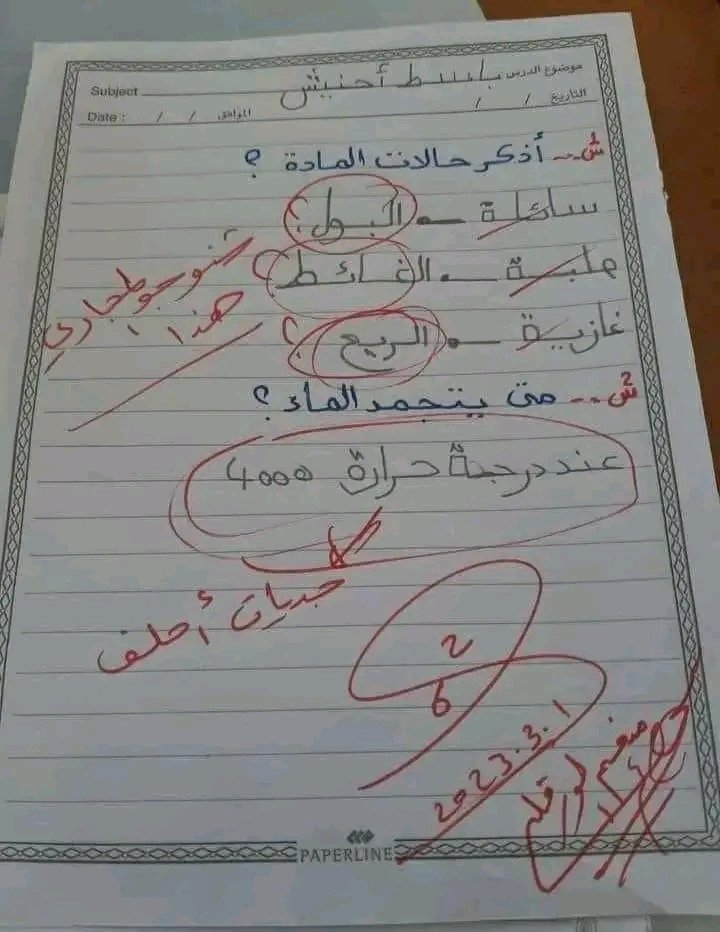 موضوع الدرس باسط أحنيش Subject
التاريخ / / الموافق / / Date :
س1-- أذكر حالات المادة ؟
سائلة -. البول ؟
صلبة -. الغائط ؟
غازية -. الريح ؟
شنو جو طجاري
هذا !
س2-- متى يتجمد الماء ؟
عند درجة حرارة 4000
جديات أحلف
2
6
2023.3.1
PAPERLINE